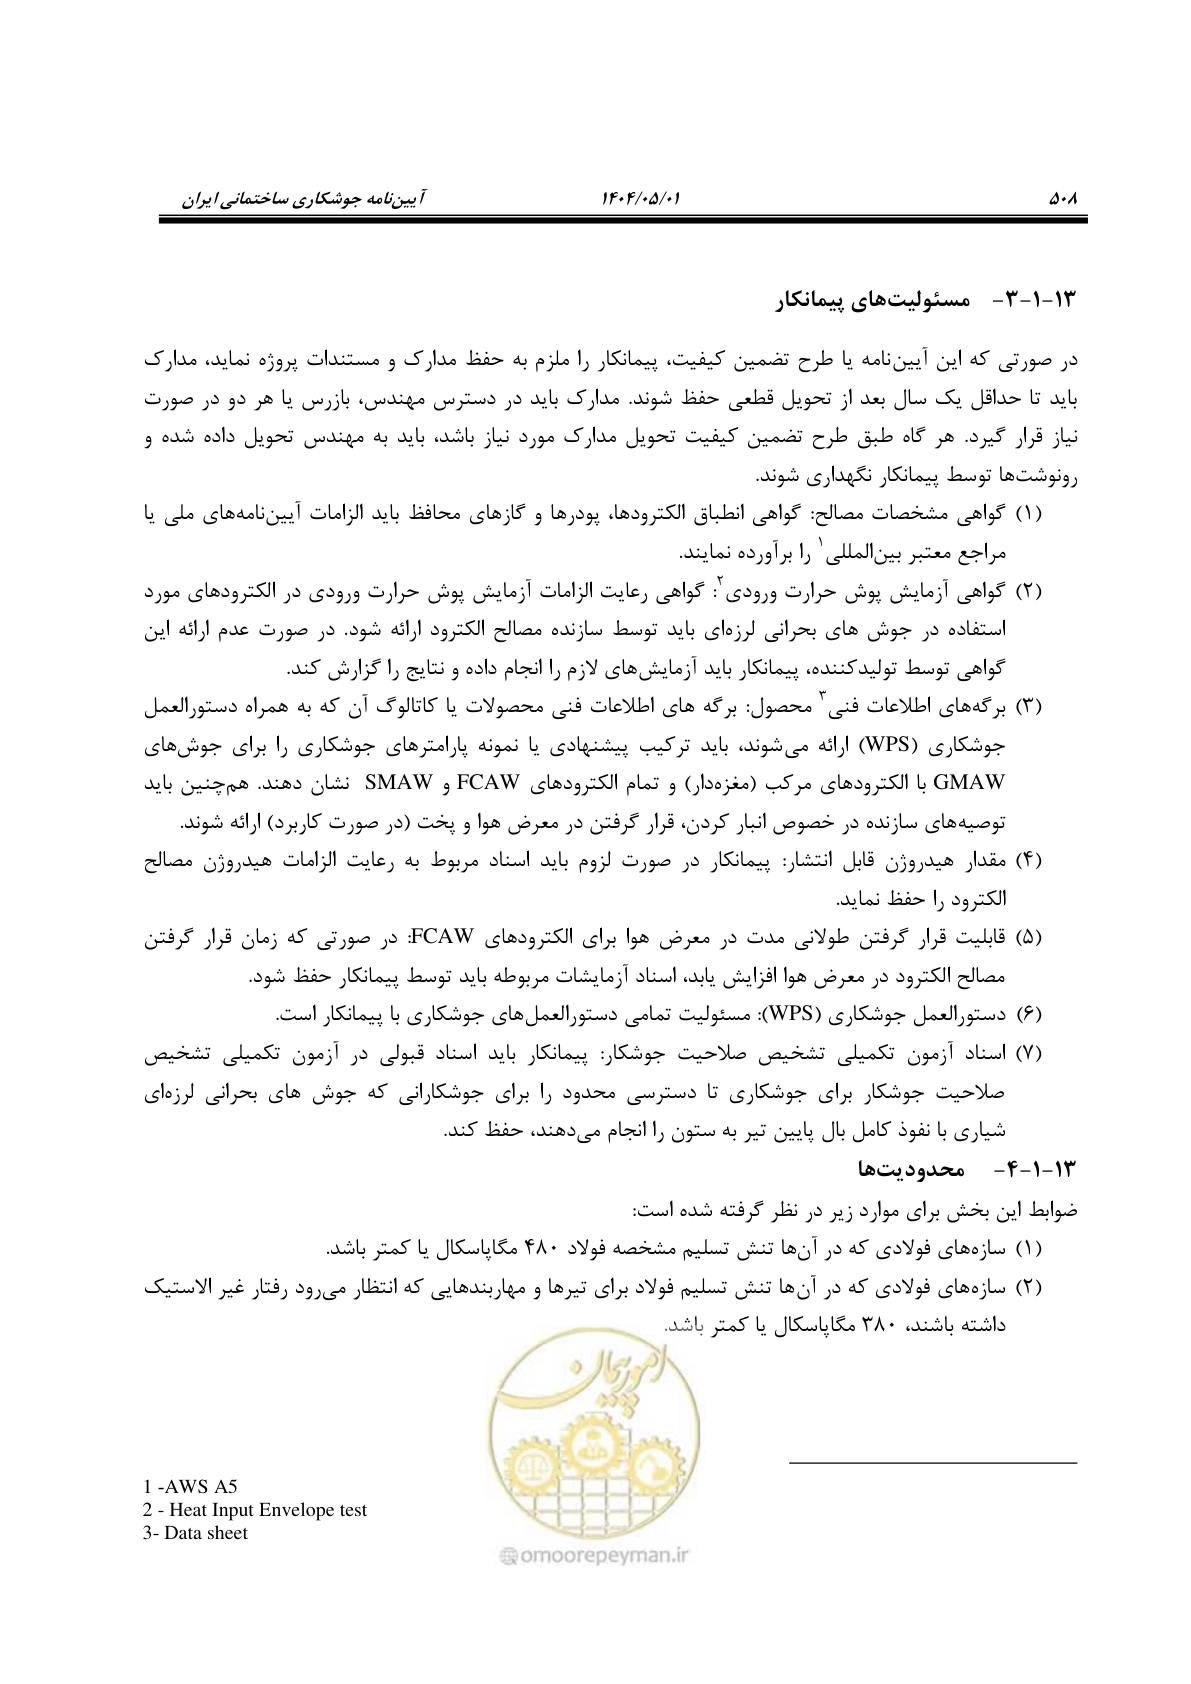 ۵۰۸ ۱۴۰۴/۰۵/۰۱ آیین‌نامه جوشکاری ساختمانی ایران
۱۳-۱-۳- مسئولیت‌های پیمانکار
در صورتی که این آیین‌نامه یا طرح تضمین کیفیت، پیمانکار را ملزم به حفظ مدارک و مستندات پروژه نماید، مدارک
باید تا حداقل یک سال بعد از تحویل قطعی حفظ شوند. مدارک باید در دسترس مهندس، بازرس یا هر دو در صورت
نیاز قرار گیرد. هر گاه طبق طرح تضمین کیفیت تحویل مدارک مورد نیاز باشد، باید به مهندس تحویل داده شده و
رونوشت‌ها توسط پیمانکار نگهداری شوند.
(۱) گواهی مشخصات مصالح: گواهی انطباق الکترودها، پودرها و گازهای محافظ باید الزامات آیین‌نامه‌های ملی یا
مراجع معتبر بین‌المللی۱ را برآورده نمایند.
(۲) گواهی آزمایش پوش حرارت ورودی۲: گواهی رعایت الزامات آزمایش پوش حرارت ورودی در الکترودهای مورد
استفاده در جوش های بحرانی لرزه‌ای باید توسط سازنده مصالح الکترود ارائه شود. در صورت عدم ارائه این
گواهی توسط تولیدکننده، پیمانکار باید آزمایش‌های لازم را انجام داده و نتایج را گزارش کند.
(۳) برگه‌های اطلاعات فنی۳ محصول: برگه های اطلاعات فنی محصولات یا کاتالوگ آن که به همراه دستورالعمل
جوشکاری (WPS) ارائه می‌شوند، باید ترکیب پیشنهادی یا نمونه پارامترهای جوشکاری را برای جوش‌های
GMAW با الکترودهای مرکب (مغزه‌دار) و تمام الکترودهای FCAW و SMAW نشان دهند. هم‌چنین باید
توصیه‌های سازنده در خصوص انبار کردن، قرار گرفتن در معرض هوا و پخت (در صورت کاربرد) ارائه شوند.
(۴) مقدار هیدروژن قابل انتشار: پیمانکار در صورت لزوم باید اسناد مربوط به رعایت الزامات هیدروژن مصالح
الکترود را حفظ نماید.
(۵) قابلیت قرار گرفتن طولانی مدت در معرض هوا برای الکترودهای FCAW: در صورتی که زمان قرار گرفتن
مصالح الکترود در معرض هوا افزایش یابد، اسناد آزمایشات مربوطه باید توسط پیمانکار حفظ شود.
(۶) دستورالعمل جوشکاری (WPS): مسئولیت تمامی دستورالعمل‌های جوشکاری با پیمانکار است.
(۷) اسناد آزمون تکمیلی تشخیص صلاحیت جوشکار: پیمانکار باید اسناد قبولی در آزمون تکمیلی تشخیص
صلاحیت جوشکار برای جوشکاری تا دسترسی محدود را برای جوشکارانی که جوش های بحرانی لرزه‌ای
شیاری با نفوذ کامل بال پایین تیر به ستون را انجام می‌دهند، حفظ کند.
۱۳-۱-۴- محدودیت‌ها
ضوابط این بخش برای موارد زیر در نظر گرفته شده است:
(۱) سازه‌های فولادی که در آن‌ها تنش تسلیم مشخصه فولاد ۴۸۰ مگاپاسکال یا کمتر باشد.
(۲) سازه‌های فولادی که در آن‌ها تنش تسلیم فولاد برای تیرها و مهاربندهایی که انتظار می‌رود رفتار غیر الاستیک
داشته باشند، ۳۸۰ مگاپاسکال یا کمتر باشد.
امور پیمان
1 -AWS A5
2 - Heat Input Envelope test
3- Data sheet
@omoorepeyman.ir